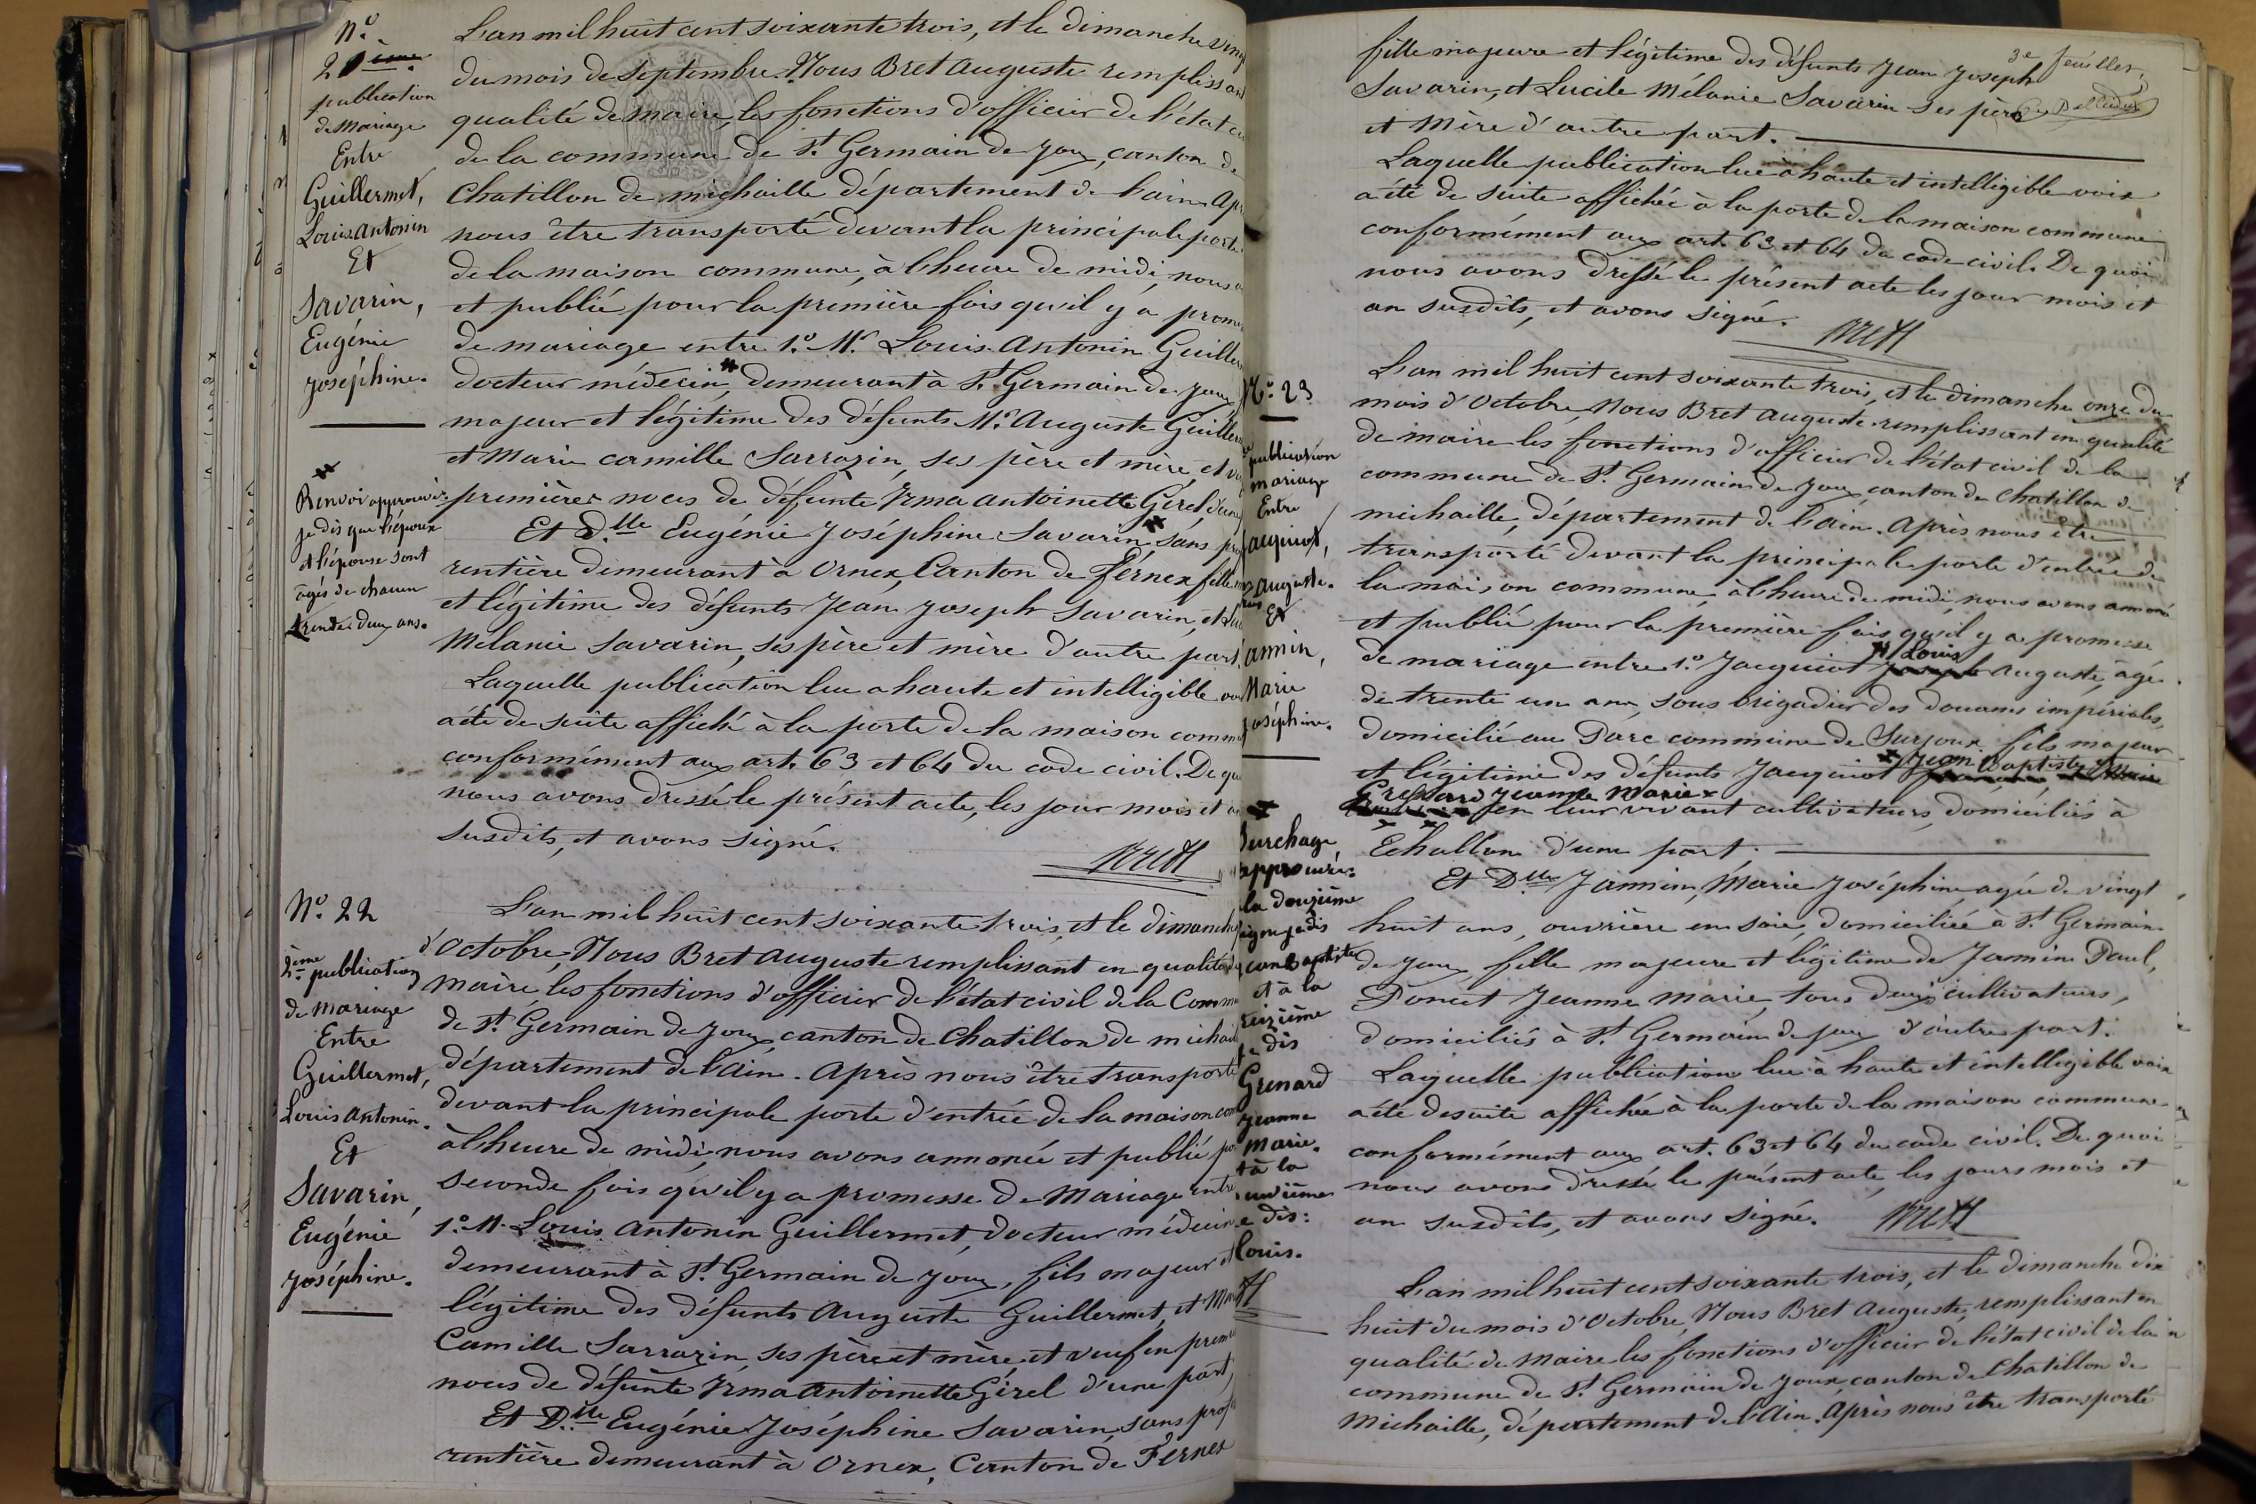 N.º
21
publication
de Mariage
Entre
Guillermet,
Louis Antonin
Et
Savarin,
Eugénie
Joséphine.
Renvoi approuvé.
je dis que l'époux
et l'épouse sont
âgés de chacun
trente deux ans.
L'an mil huit cent soixante trois, et le dimanche
du mois de Septembre. Nous Bret Auguste remplissant
qualité de maire, les fonctions d'officier de l'état
de la commune de St Germain de Joux, canton de
Chatillon de michaille département de l'ain. Ap
nous être transporté devant la principale porte
de la maison commune, à l'heure de midi, nous a
et publié pour la première fois qu'il y a prome
de mariage entre 1º. Mr. Louis Antonin Guiller
docteur médecin, demeurant à St Germain de Joux
majeur et légitime des défunts Mr. Auguste Guiller
et Marie camille Sarrazin, ses père et mère, et v
premières noces de défunte Irma Antoinette Gérel d'une
Et D.lle Eugénie Joséphine Savarin sans pro
rentière demeurant à Ornex, Canton de Fernex fille
et légitime des défunts Jean Joseph Savarin, et Lu
Mélanie Savarin, ses père et mère d'autre part
Laquelle publication lue a haute et intelligible voi
a été de suite affiché à la porte de la maison comm
conformément aux art. 63 et 64 du code civil. De qu
nous avons dressé le présent acte, les jour mois et a
susdits, et avons signé.
Bret
Nº. 22
2ème publication
de mariage
Entre
Guillermet,
Louis Antonin.
Et
Savarin,
Eugénie
Joséphine.
L'an mil huit cent soixante trois, et le dimanche
d'Octobre, Nous Bret Auguste remplissant en qualité de
maire, les fonctions d'officier de l'état civil de la Comm
de St Germain de Joux, canton de Chatillon de michail
département de l'Ain. Après nous être transporté
devant la principale porte d'entrée de la maison com
à l'heure de midi, nous avons annoncé et publié po
seconde fois qu'il y a promesse de Mariage entre
1º. M. Louis Antonin Guillermet, docteur médecin
demeurant à St Germain de Joux, fils majeur et
légitime des défunts Auguste Guillermet, et Mar
Camille Sarrazin, ses père et mère, et veuf en premi
noces de défunte Irma Antoinette Gérel d'une part,
Et D.lle Eugénie Joséphine Savarin, sans prof
rentière demeurant à Ornex, Canton de Fernex
3e feuillet,
fille majeure et légitime des défunts Jean Joseph
Savarin, et Lucile Mélanie Savarin ses père
et Mère d'autre part.
Laquelle publication lue à haute et intelligible voix
a été de suite affichée à la porte de la maison commune
conformément aux art. 63 et 64 du code civil. De quoi
nous avons dressé le présent acte les jour mois et
an susdits, et avons signé.
Bret
Nº. 23
publication
mariage
Entre
Jacquiot,
Auguste.
Et
Jamin,
Marie
Joséphine.
Surchage
approuvée
la douzième
ligne je dis
Jean Baptiste
et à la
treizième
je dis
Grenard
Jeanne
Marie.
et à la
neuvième
je dis:
Louis.
L'an mil huit cent soixante trois, et le dimanche onze du
mois d'Octobre, Nous Bret Auguste remplissant en qualité
de maire les fonctions d'officier de l'état civil de la
commune de St Germain de Joux, canton de Chatillon de
michaille, département de l'ain. Après nous être
transporté devant la principale porte d'entrée de
la maison commune, à l'heure de midi, nous avons annoncé
et publié pour la première fois qu'il y a promesse
de mariage entre 1º. Jacquiot Louis Auguste, âgé
de trente un ans, sous brigadier des douanes impériales,
domicilié au Parc commune de Surjoux. fils majeur
et légitime des défunts Jacquiot Jean Baptiste,
Jeanne Marie en leur vivant cultivateurs, domiciliés à
Echallon d'une part.
Et D.lle Jamin, Marie Joséphine, agée de vingt
huit ans, ouvrière en soie, domiciliée à St Germain
de Joux fille majeure et légitime de Jamin Paul,
Poncet Jeanne Marie, tous deux cultivateurs,
domiciliés à St Germain de joux d'autre part.
Laquelle publication lue à haute et intelligible voix
a été de suite affichée à la porte de la maison commune
conformément aux art. 63 et 64 du code civil. De quoi
nous avons dressé le présent acte, les jours mois et
an susdits, et avons signé.
Bret
L'an mil huit cent soixante trois, et le dimanche dix
huit du mois d'Octobre, Nous Bret Auguste, remplissant en
qualité de Maire les fonctions d'officier de l'état civil de la
commune de St Germain de Joux, canton de Chatillon de
Michaille, département de l'Ain. Après nous être transporté